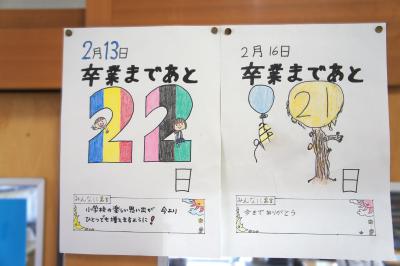 2月13日
卒業まであと
22
日
みんなに一言
小学校の楽しい思い出が 今より
ひとつでも増えますように!
2月16日
卒業まであと
21
日
みんなに一言
今までありがとう